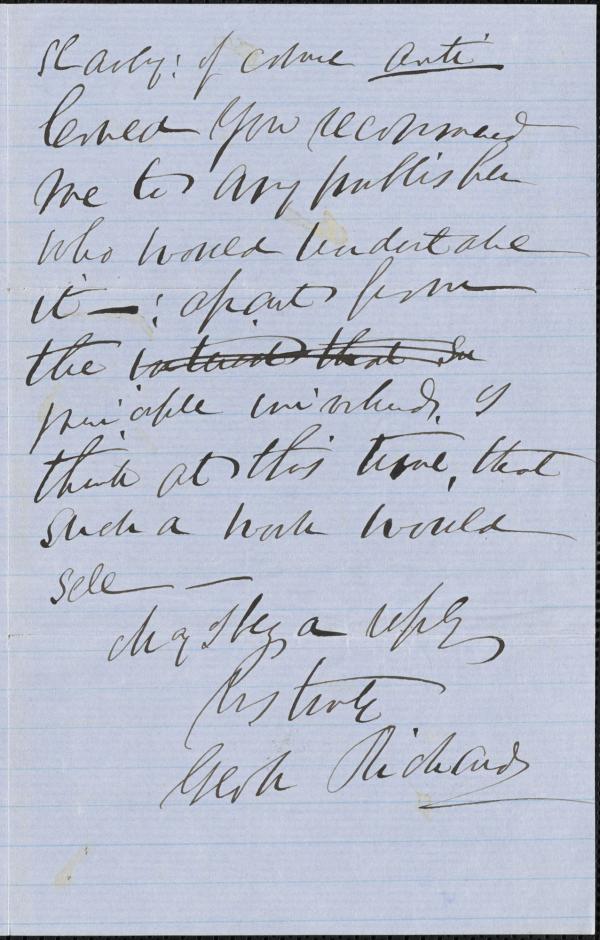 Slavery: of course anti
Could You recommend
me to any publisher
who would undertake
it —: apart from
the interest that in
principle involved, I
think at this time, that
such a work would
sell —
May I beg a reply
Yrs truly
Geo Richards